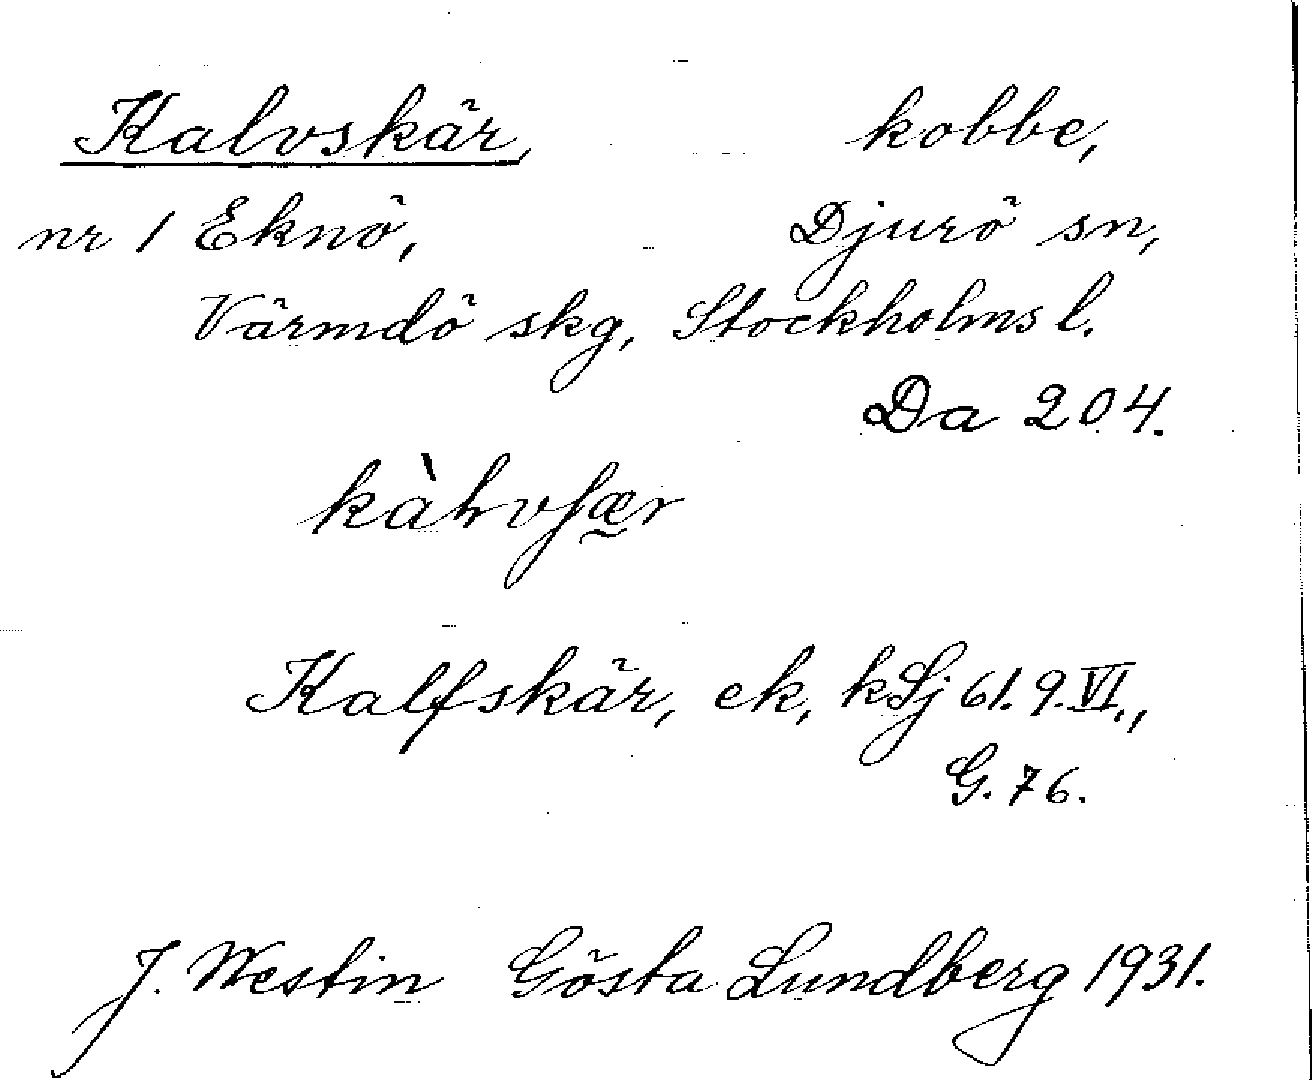 Kalvskär, kobbe,
nr 1 Eknö, Djurö sn,
Värmdö skg, Stockholms l.
Da 204.
Kalfskär, ek, kSj 61.9.VI.,
G. 76.
J. Westin Gösta Lundberg 1931.